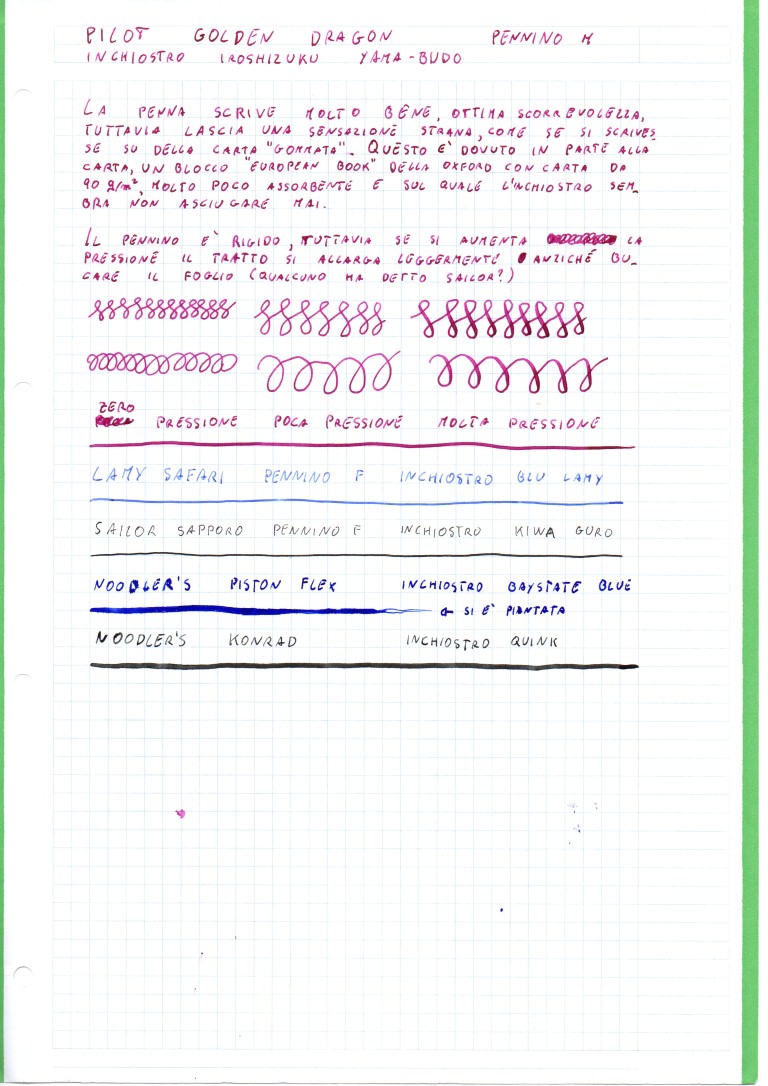 PILOT GOLDEN DRAGON PENNINO M
INCHIOSTRO IROSHIZUKU YAMA-BUDO
LA PENNA SCRIVE MOLTO BENE, OTTIMA SCORREVOLEZZA,
TUTTAVIA LASCIA UNA SENSAZIONE STRANA, COME SE SI SCRIVES
SE SU DELLA CARTA "GOMMATA". QUESTO E' DOVUTO IN PARTE ALLA
CARTA, UN BLOCCO "EUROPEAN BOOK" DELLA OXFORD CON CARTA DA
90 g/m², MOLTO POCO ASSORBENTE E SUL QUALE L'INCHIOSTRO SEM_
BRA NON ASCIUGARE MAI.
IL PENNINO E' RIGIDO, TUTTAVIA SE SI AUMENTA LA
PRESSIONE IL TRATTO SI ALLARGA LEGGERMENTE ANZICHÉ BU_
CARE IL FOGLIO (QUALCUNO HA DETTO SAILOR?)
ZERO
PRESSIONE POCA PRESSIONE MOLTA PRESSIONE
LAMY SAFARI PENNINO F INCHIOSTRO BLU LAMY
SAILOR SAPPORO PENNINO F INCHIOSTRO KIWA GURO
NOODLER'S PISTON FLEX INCHIOSTRO BAYSTATE BLUE
← SI E' PIANTATA
NOODLER'S KONRAD INCHIOSTRO QUINK